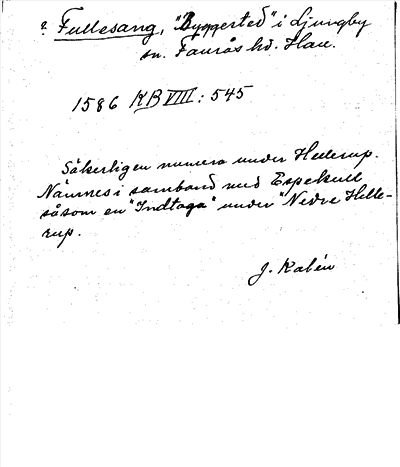 ? Fullesang, "Byggersted" i Ljungby
sn. Faurås hd. Hall.
1586 KB VIII: 545
Säkerligen numera under Hellerup.
Nämnes i samband med Espekull
såsom en "Indtaga" under "Nedre Helle-
rup.
J. Kalén